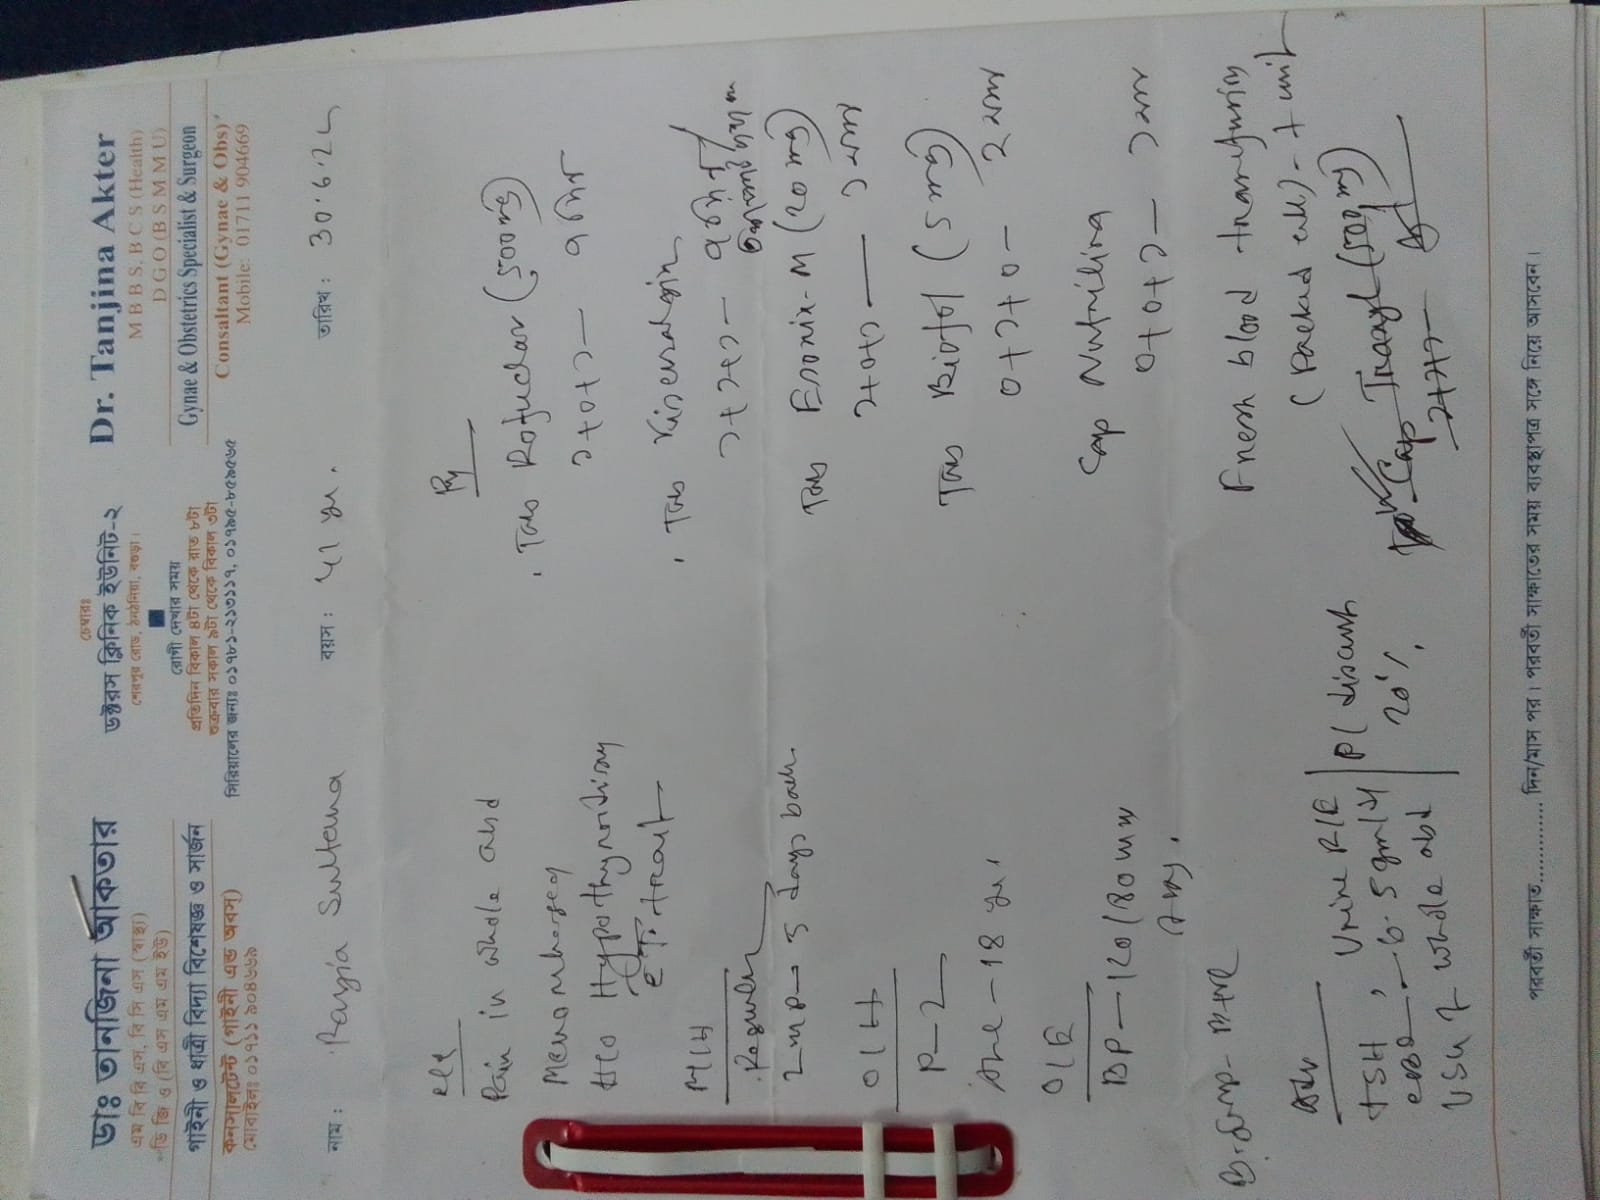 ডাঃ তানজিনা আকতার
এম বি বি এস, বি সি এস (স্বাস্থ্য)
ডি জি ও (বি এস এম এম ইউ)
গাইনী ও ধাত্রী বিদ্যা বিশেষজ্ঞ ও সার্জন
কনসালটেন্ট (গাইনী এন্ড অবস্)
মোবাইলঃ ০১৭১১ ৯০৪৬৬৯
চেম্বারঃ
ডক্টরস ক্লিনিক ইউনিট-২
শেরপুর রোড, ঠনঠনিয়া, বগুড়া।
রোগী দেখার সময়
প্রতিদিন বিকাল ৪টা থেকে রাত ৮টা
শুক্রবার সকাল ৯টা থেকে বিকাল ৩টা
সিরিয়ালের জন্যঃ ০১৭৪১-২১৩১১৭, ০১৭৯৫-৮৫৯৫৬৫
Dr. Tanjina Akter
M B B S, B C S (Health)
D G O (B S M M U)
Gynae & Obstetrics Specialist & Surgeon
Consaltant (Gynae & Obs)
Mobile: 01711 904669
নাম : Sultana
বয়স : 41 yr.
তারিখ : 30.6.2
Pain in whole abd
H/O Hypothyroidism
trait
M/H
Regular
LMP- 5 days back
O/H
P-2
ALC - 18 yrs
O/E
BP - 120/80 mm
B. Group - B+ve
Adv
TSH, Urine R/E
CBC - 6.5 gm/dl
USG of whole abd
P/ discount
20%
Rx
Tab Rofuclav (500 mg)
১+০+১ - ৭ দিন
Tab Visceralgin
১+১+১ - ৭ দিন/
Tab Esonix-M (20 mg)
১+০+১ - ১ মাস
Tab Biofol (5 mg)
০+১+০ - ২ মাস
Cap Nutrilina
০+০+১ - ১ মাস
Fresh blood transfusion
(Packed cell) - 1 unit
Cap Traxyl (500 mg)
১+১+১ -
পরবর্তী সাক্ষাত............. দিন/মাস পর। পরবর্তী সাক্ষাতের সময় ব্যবস্থাপত্র সঙ্গে নিয়ে আসবেন।